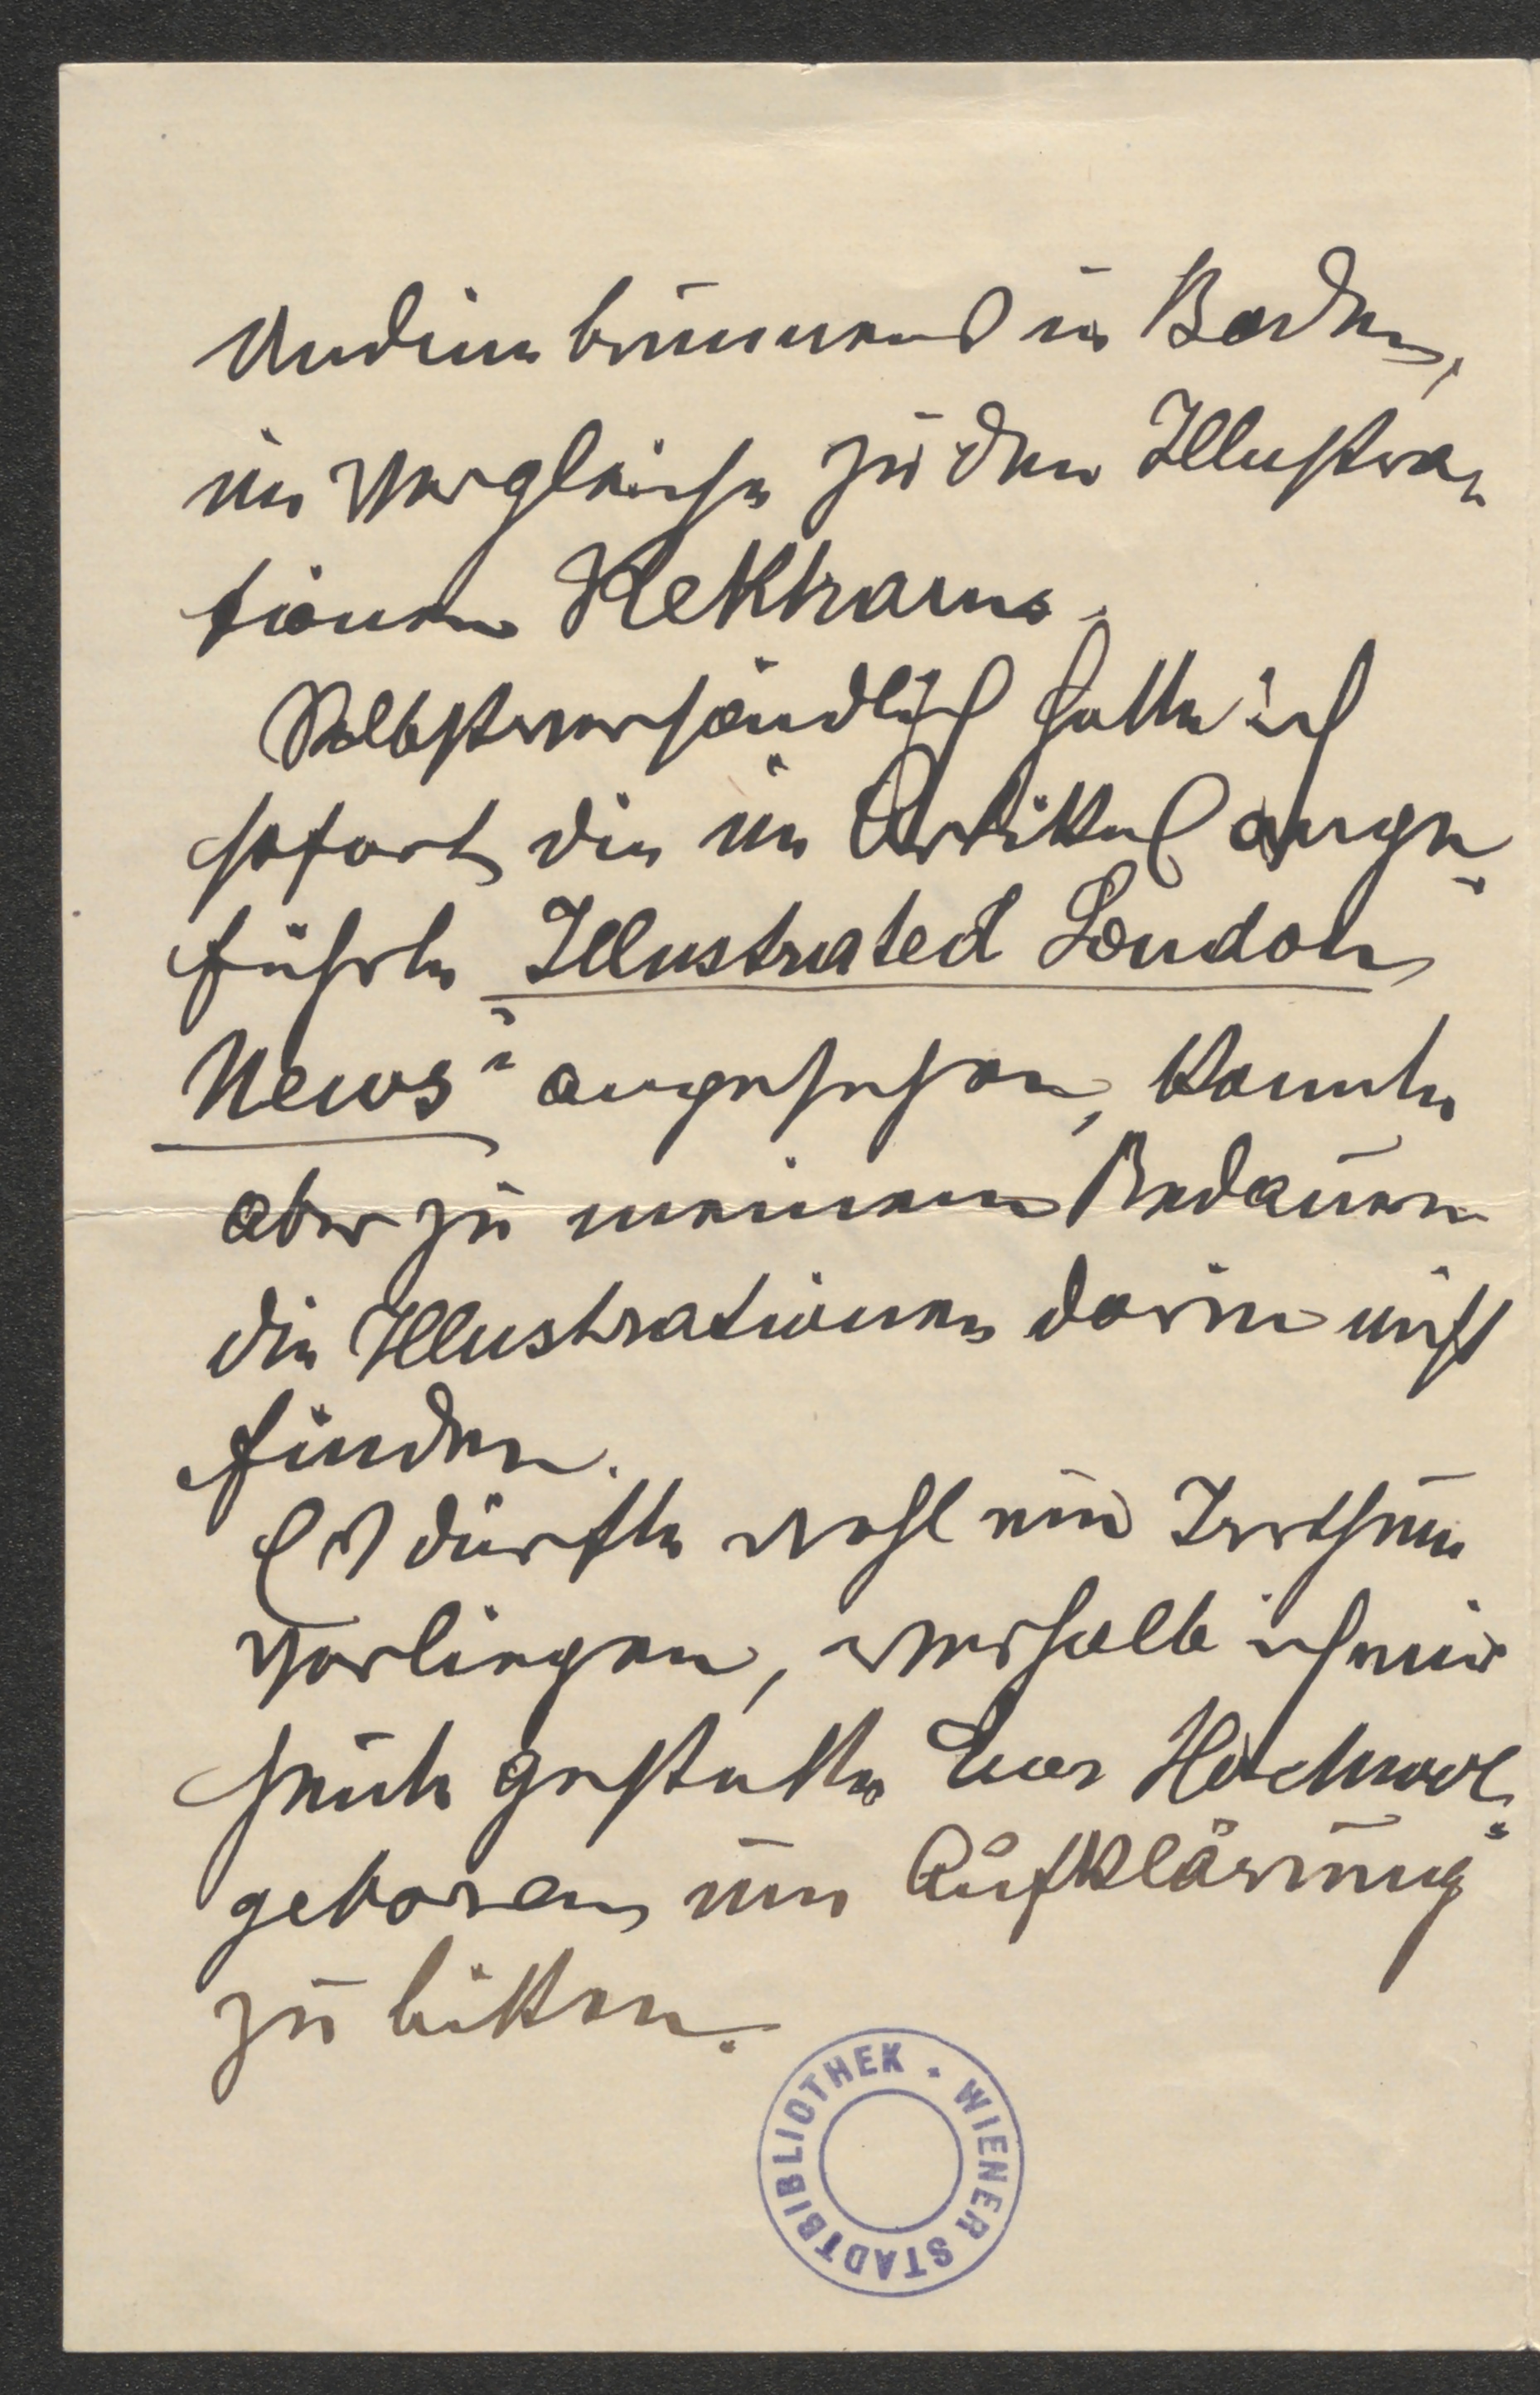 Undinebrunnens in Baden,
im Vergleiche zu den Illustra-
tionen Rekhams.
Selbstverständlich hatte ich
sofort die im Artikel ange-
führte Illustrated London
News" angesehen, konnte
aber zu meinem Bedauern
die Illustrationen darin nicht
finden.
Es dürfte wohl ein Irrthum
vorliegen, weshalb ich mir
heute gestatte Euer Hochwol-
geboren um Aufklärung
zu bitten.
WIENER STADTBIBLIOTHEK